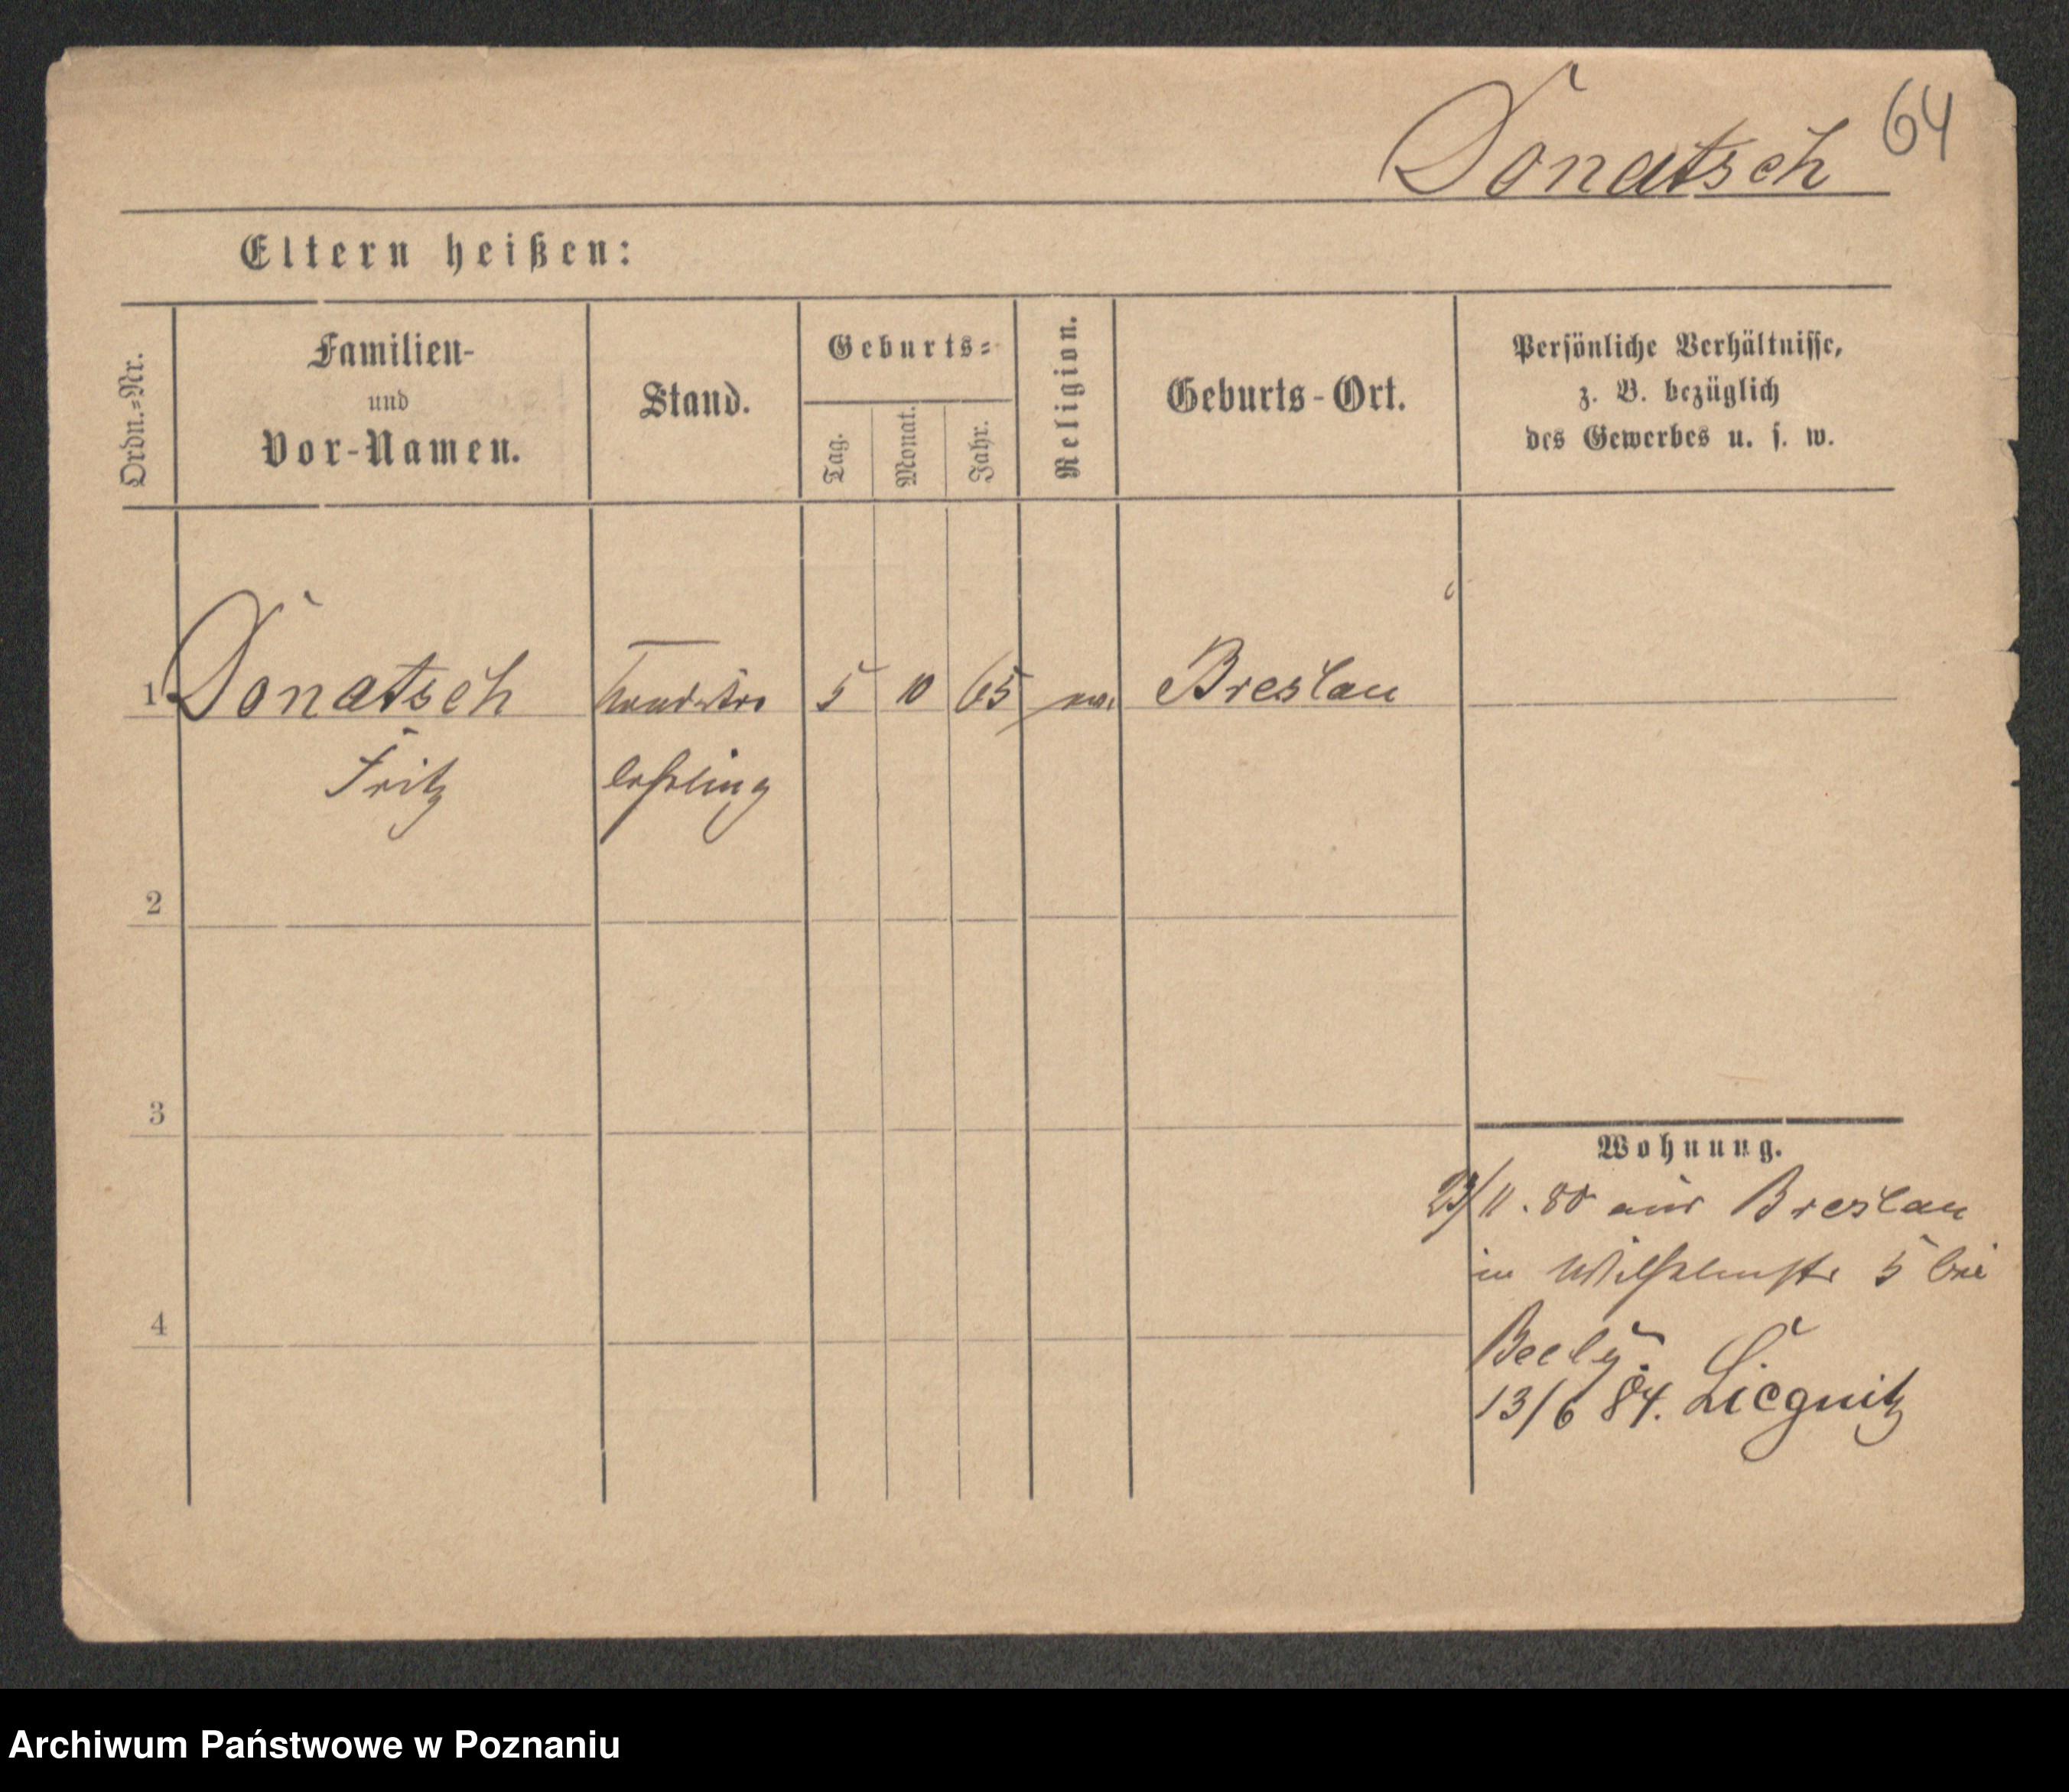 Donatsch 64
Eltern heißen:
Ordn.=Nr.
Familien-
und
Vor-Namen.
Stand.
Geburts=
Tag.
Monat.
Jahr.
Religion.
Geburts-Ort.
Persönliche Verhältnisse,
z. B. bezüglich
des Gewerbes u. s. w.
1 Donatsch 5 10 65 Breslau
Fritz lehrling
2
3
4
Wohnung.
23/11. 80 aus Breslau
in Wilhelmstr 5 bei
Beely.
13/6 84. Liegnitz
Archiwum Państwowe w Poznaniu